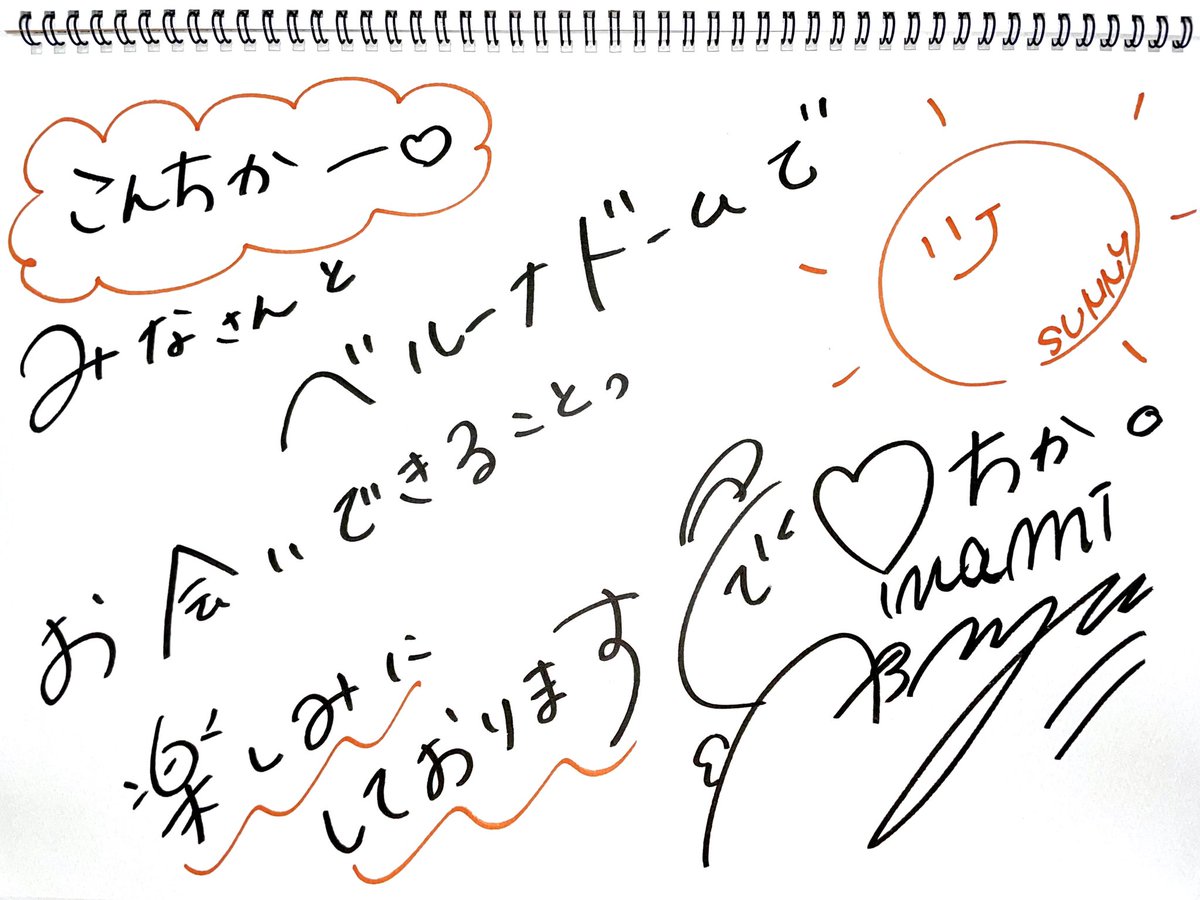 こんちかー♡
みなさんと
ベルーナドームで
お会いできることっ
楽しみに
しております
SUNNY
♡ちか。
inami
Anju